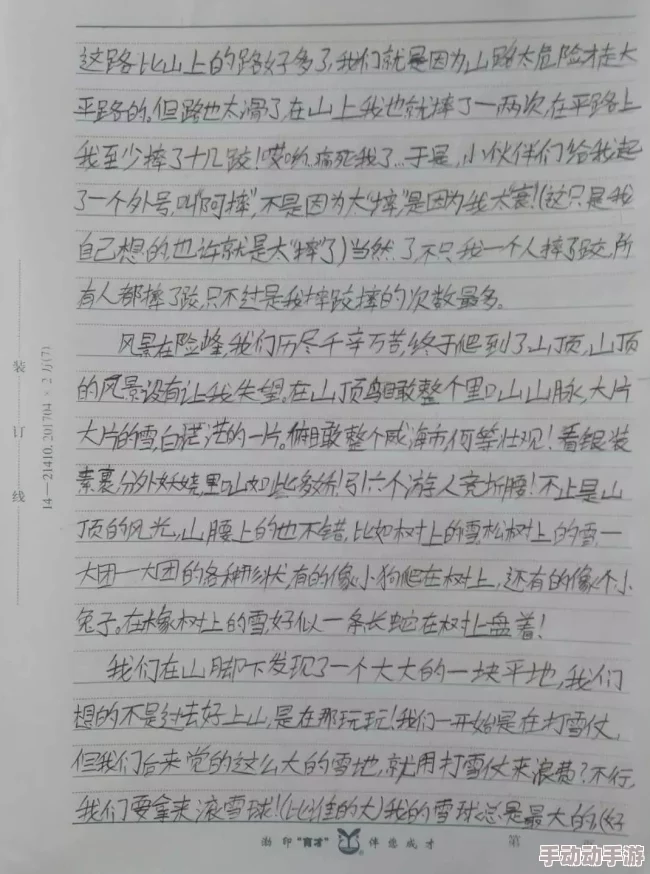 这路比山上的路好多了,我们就是因为山路太危险才走大
平路的。但路也太滑了,在山上我也就摔了一两次,在平路上
我至少摔了十几跤!哎哟,痛死我了…于是,小伙伴们给我起
了一个外号,叫"阿摔",不是因为太"摔",是因为我太"衰!(这只是我
自己想的,也许就是太"摔"了)当然了,不只我一个人摔了跤,所
有人都摔了跤,只不过是我摔跤摔的次数最多。
风景在险峰,我们历尽千辛万苦,终于爬到了山顶,山顶
的风景没有让我失望。在山顶鸟瞰整个里口山山脉,大片
大片的雪,白茫茫的一片。俯瞰整个威海市,何等壮观!看银装
素裹,分外妖娆,里口山如此多娇!引六个游人竞折腰!不止是山
顶的风光,山腰上的也不错,比如树上的雪。松树上的雪,一
大团一大团的各种形状,有的像小狗爬在树上,还有的像个小
兔子。在橡树上的雪,好似一条长蛇在树上盘着!
我们在山脚下发现了一个大大的一块平地,我们
想的不是过去好上山,是在那玩玩!我们一开始是在打雪仗,
但我们后来觉的这么大的雪地,就用打雪仗来浪费?不行,
我们要拿来滚雪球!(比谁的大)我的雪球总是最大的(好
装
订
线
14—21410.201704×2万(7)
渤印"育才" 伴您成才
第
手动动手游